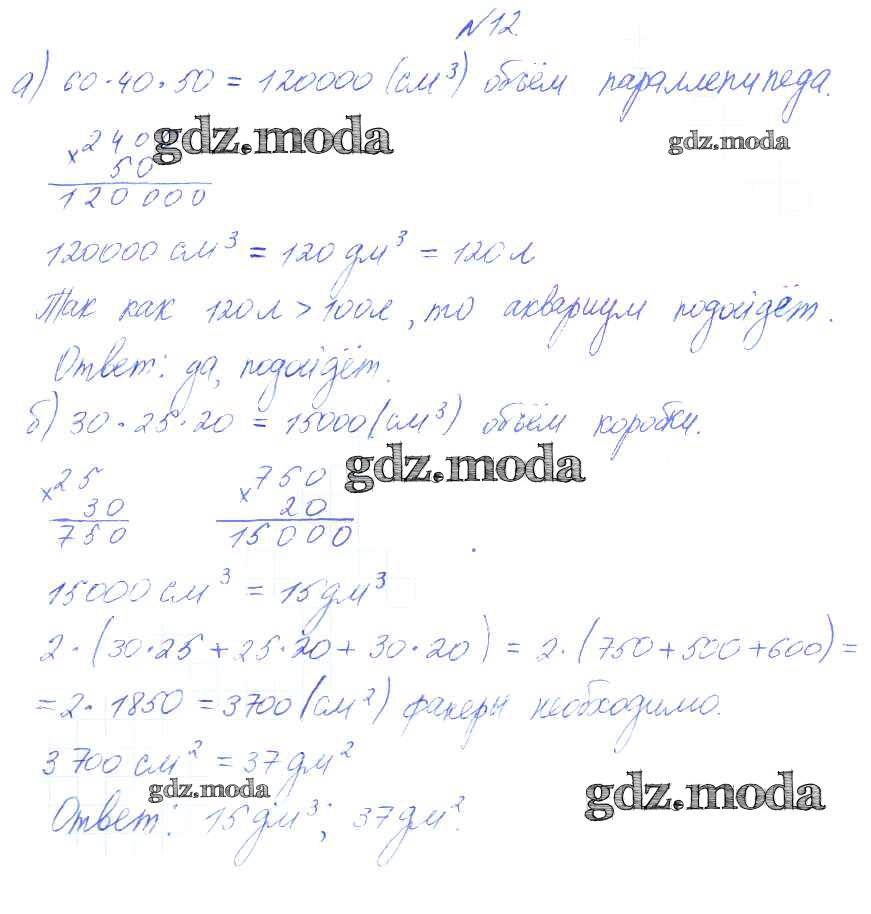 №12.
а) 60·40·50 = 120000 (см³) объём параллепипеда.
gdz.moda
gdz.moda
× 240
50
120 000
120000 см³ = 120 дм³ = 120 л
Так как 120л > 100л, то аквариум подойдёт.
Ответ: да, подойдёт.
б) 30·25·20 = 15000 (см³) объём коробки.
gdz.moda
× 25
30
750
× 750
20
15000
15000 см³ = 15 дм³
2·(30·25 + 25·20 + 30·20) = 2·(750+500+600) =
= 2·1850 = 3700 (см²) фанеры необходимо.
3700 см² = 37 дм²
gdz.moda
gdz.moda
Ответ: 15 дм³; 37 дм².